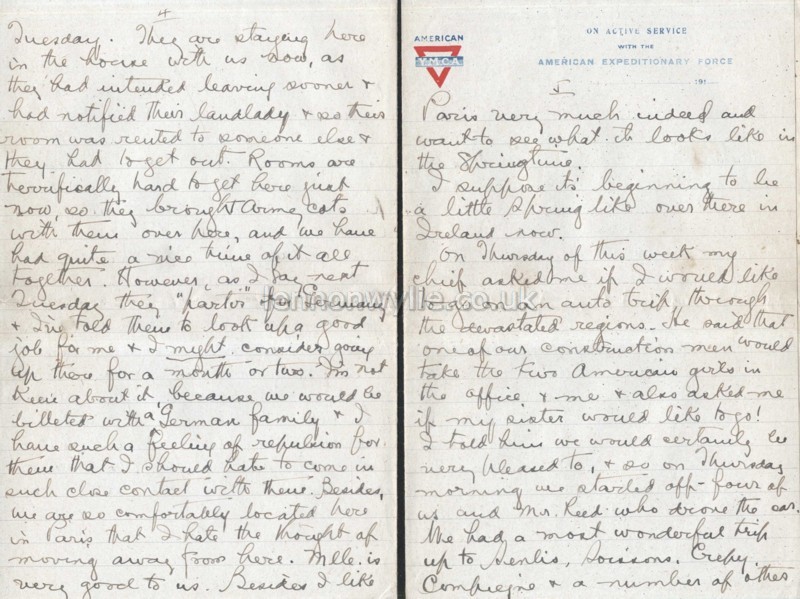 4
Tuesday. They are staying here
in the house with us now, as
they had intended leaving sooner &
had notified their landlady & so their
room was rented to someone else &
they had to get out. Rooms are
terrifically hard to get here just
now, so they brought Army cots
with them over here, and we have
had quite a nice time of it all
together. However, as I say next
Tuesday they "partir" for Germany
& I've told them to look up a good
job for me & I might consider going
up there for a month or two. I'm not
keen about it, because we would be
billeted with a German family & I
have such a feeling of repulsion for
them that I should hate to come in
such close contact with them. Besides,
we are so comfortably located here
in Paris that I hate the thought of
moving away from here. Mlle. is
very good to us. Besides I like
AMERICAN
Y.M.C.A
ON ACTIVE SERVICE
WITH THE
AMERICAN EXPEDITIONARY FORCE
191
Paris very much indeed and
want to see what it looks like in
the Springtime.
I suppose it's beginning to be
a little Spring like over there in
Ireland now.
On Thursday of this week my
chief asked me if I would like
to go on an auto trip through
the devastated regions. He said that
one of our construction men would
take the two American girls in
the office & me & also asked me
if my sister would like to go!
I told him we would certainly be
very pleased to, & so on Thursday
morning we started off - four of
us and Mr. Reed who drove the car.
We had a most wonderful trip
up to Senlis, Soissons, Crepy,
Compiegne & a number of other
lennonwylie.co.uk